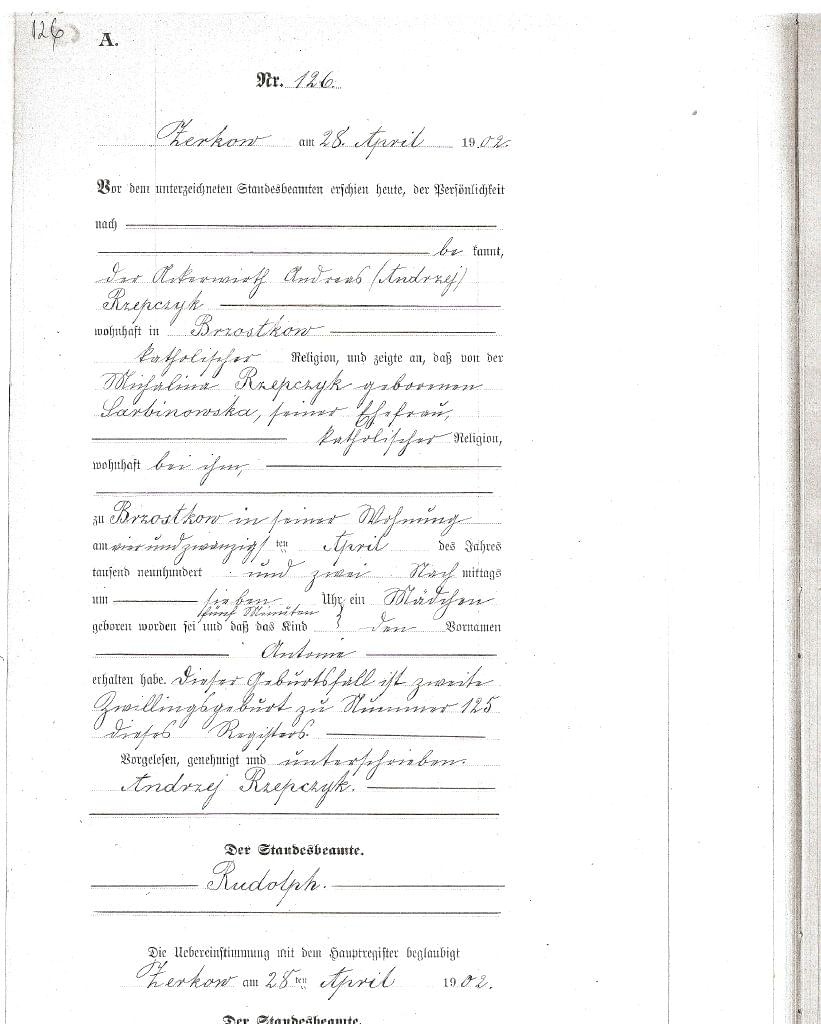 126
A.
Nr. 126.
Zerkow am 28. April 1902.
Vor dem unterzeichneten Standesbeamten erschien heute, der Persönlichkeit
nach
be kannt,
der Ackerwirth Andreas (Andrzej)
Rzepczyk
wohnhaft in Brzostkow
katholischer Religion, und zeigte an, daß von der
Michalina Rzepczyk geborenen
Sarbinowska, seiner Ehefrau,
katholischer Religion,
wohnhaft bei ihm,
zu Brzostkow in seiner Wohnung
am vier und zwanzigsten April des Jahres
tausend neunhundert und zwei Nach mittags
um sieben Uhr ein Mädchen
fünf Minuten
geboren worden sei und daß das Kind den Vornamen
Antonie
erhalten habe. Dieser Geburtsfall ist zweite
Zwillingsgeburt zu Nummer 125
dieses Registers.
Vorgelesen, genehmigt und unterschrieben.
Andrzej Rzepczyk.
Der Standesbeamte.
Rudolph.
Die Uebereinstimmung mit dem Hauptregister beglaubigt
Zerkow am 28ten April 1902.
Der Standesbeamte.